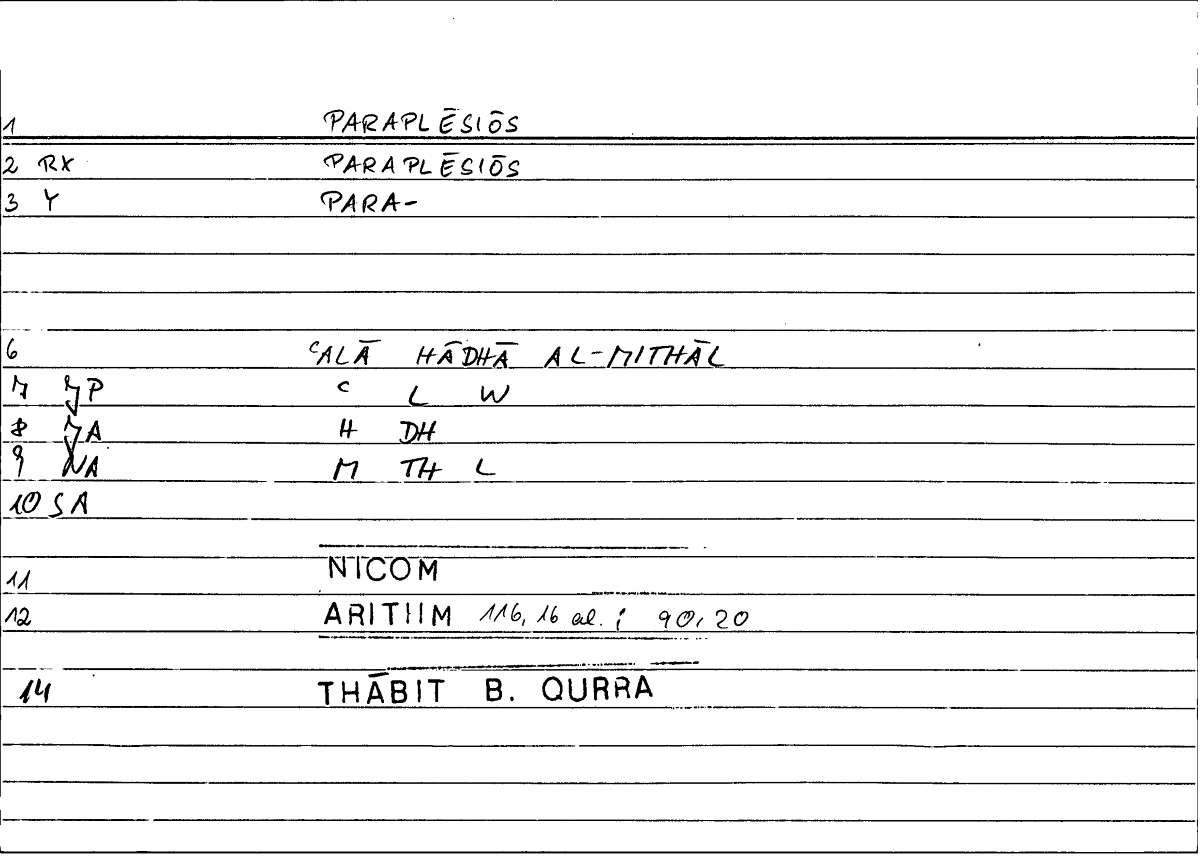 1 PARAPLĒSIŌS
2 RX PARAPLĒSIŌS
3 Y PARA-
6 ʿALĀ HĀDHĀ AL-MITHĀL
7 JP ʿ L W
8 JA H DH
9 NA M TH L
10 SA
11 NICOM
12 ARITIIM 116,16 al. ; 90,20
14 THĀBIT B. QURRA